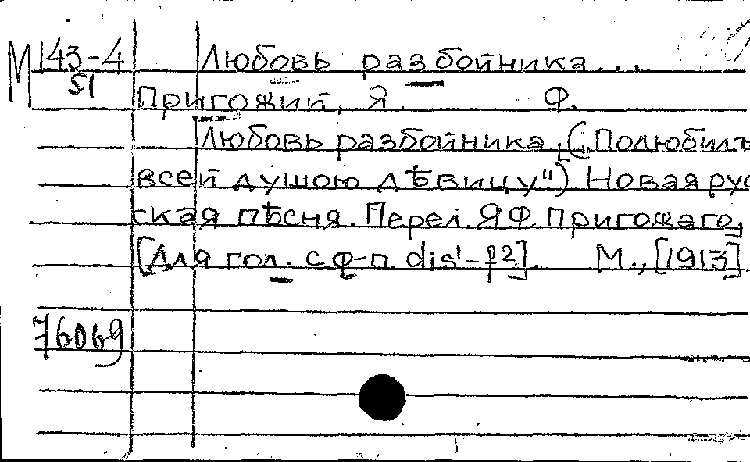 М 143-4 Любовь разбойника...
51
Пригожий, Я. Ф.
Любовь разбойника. („Полюбилъ
всей душою дѣвицу") Новая рус
ская пѣсня. Перел. Я Ф Пригожаго.
[Для гол. с ф-п. dis¹-f2] М., [1913]
76069